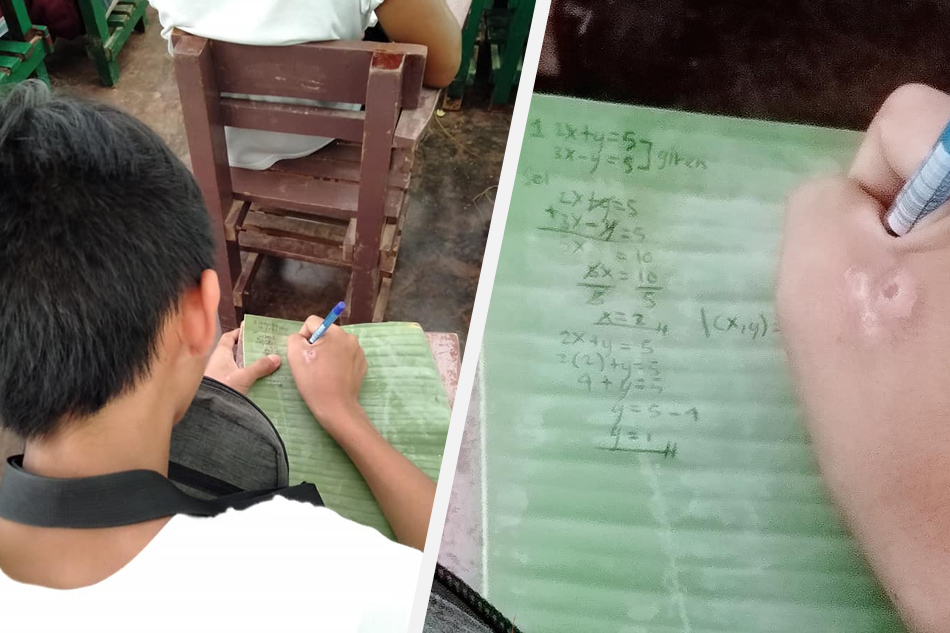 1 2x+y=5
3x-y=5] given
Sol
2x+y=5
+3x-y=5
5x = 10
5x = 10
5 5
x=2
2x+y=5
=(2)+y=5
4+y=5
y=5-4
y=1
(x,y)=